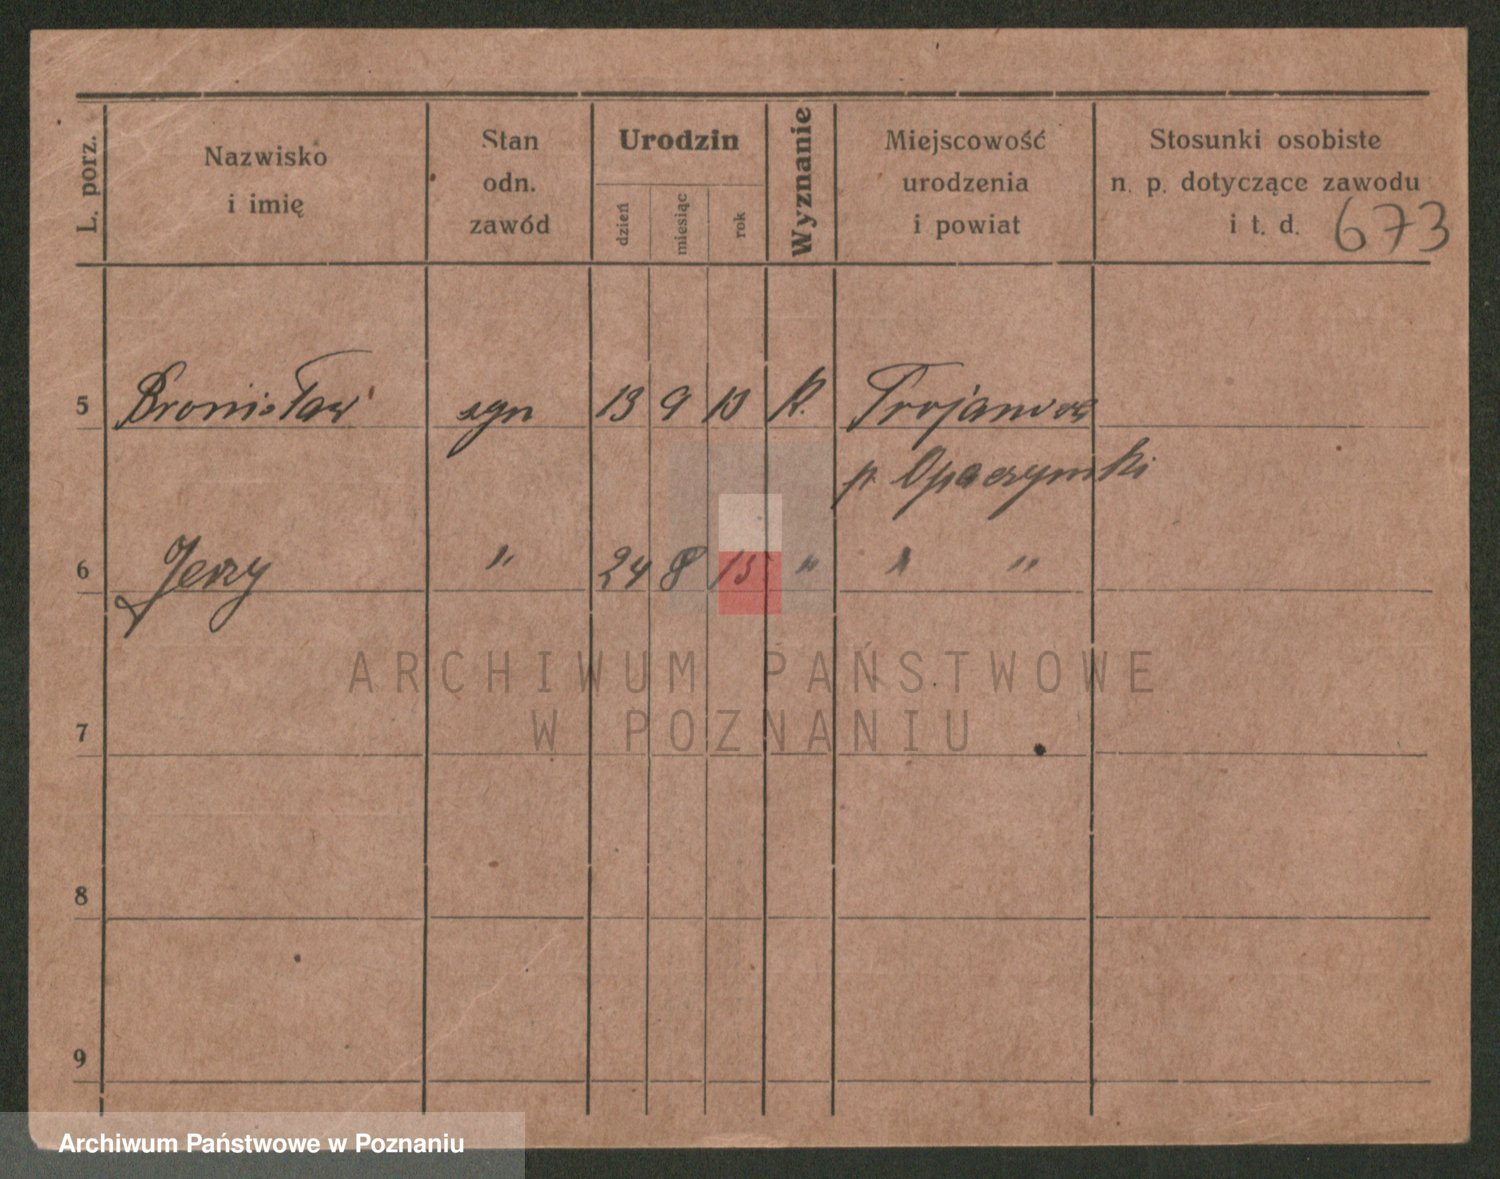 L. porz.
Nazwisko
i imię
Stan
odn.
zawód
Urodzin
dzień
miesiąc
rok
Wyznanie
Miejscowość
urodzenia
i powiat
Stosunki osobiste
n. p. dotyczące zawodu
i t. d.
673
5 Bronisław 13 9 K.
p. Opoczyński
6 Jerzy " 24 8 13 " " "
7
8
9
ARCHIWUM PAŃSTWOWE
W POZNANIU
Archiwum Państwowe w Poznaniu